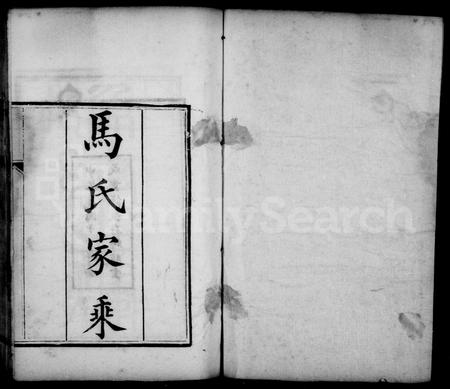 馬氏家乘
FamilySearch